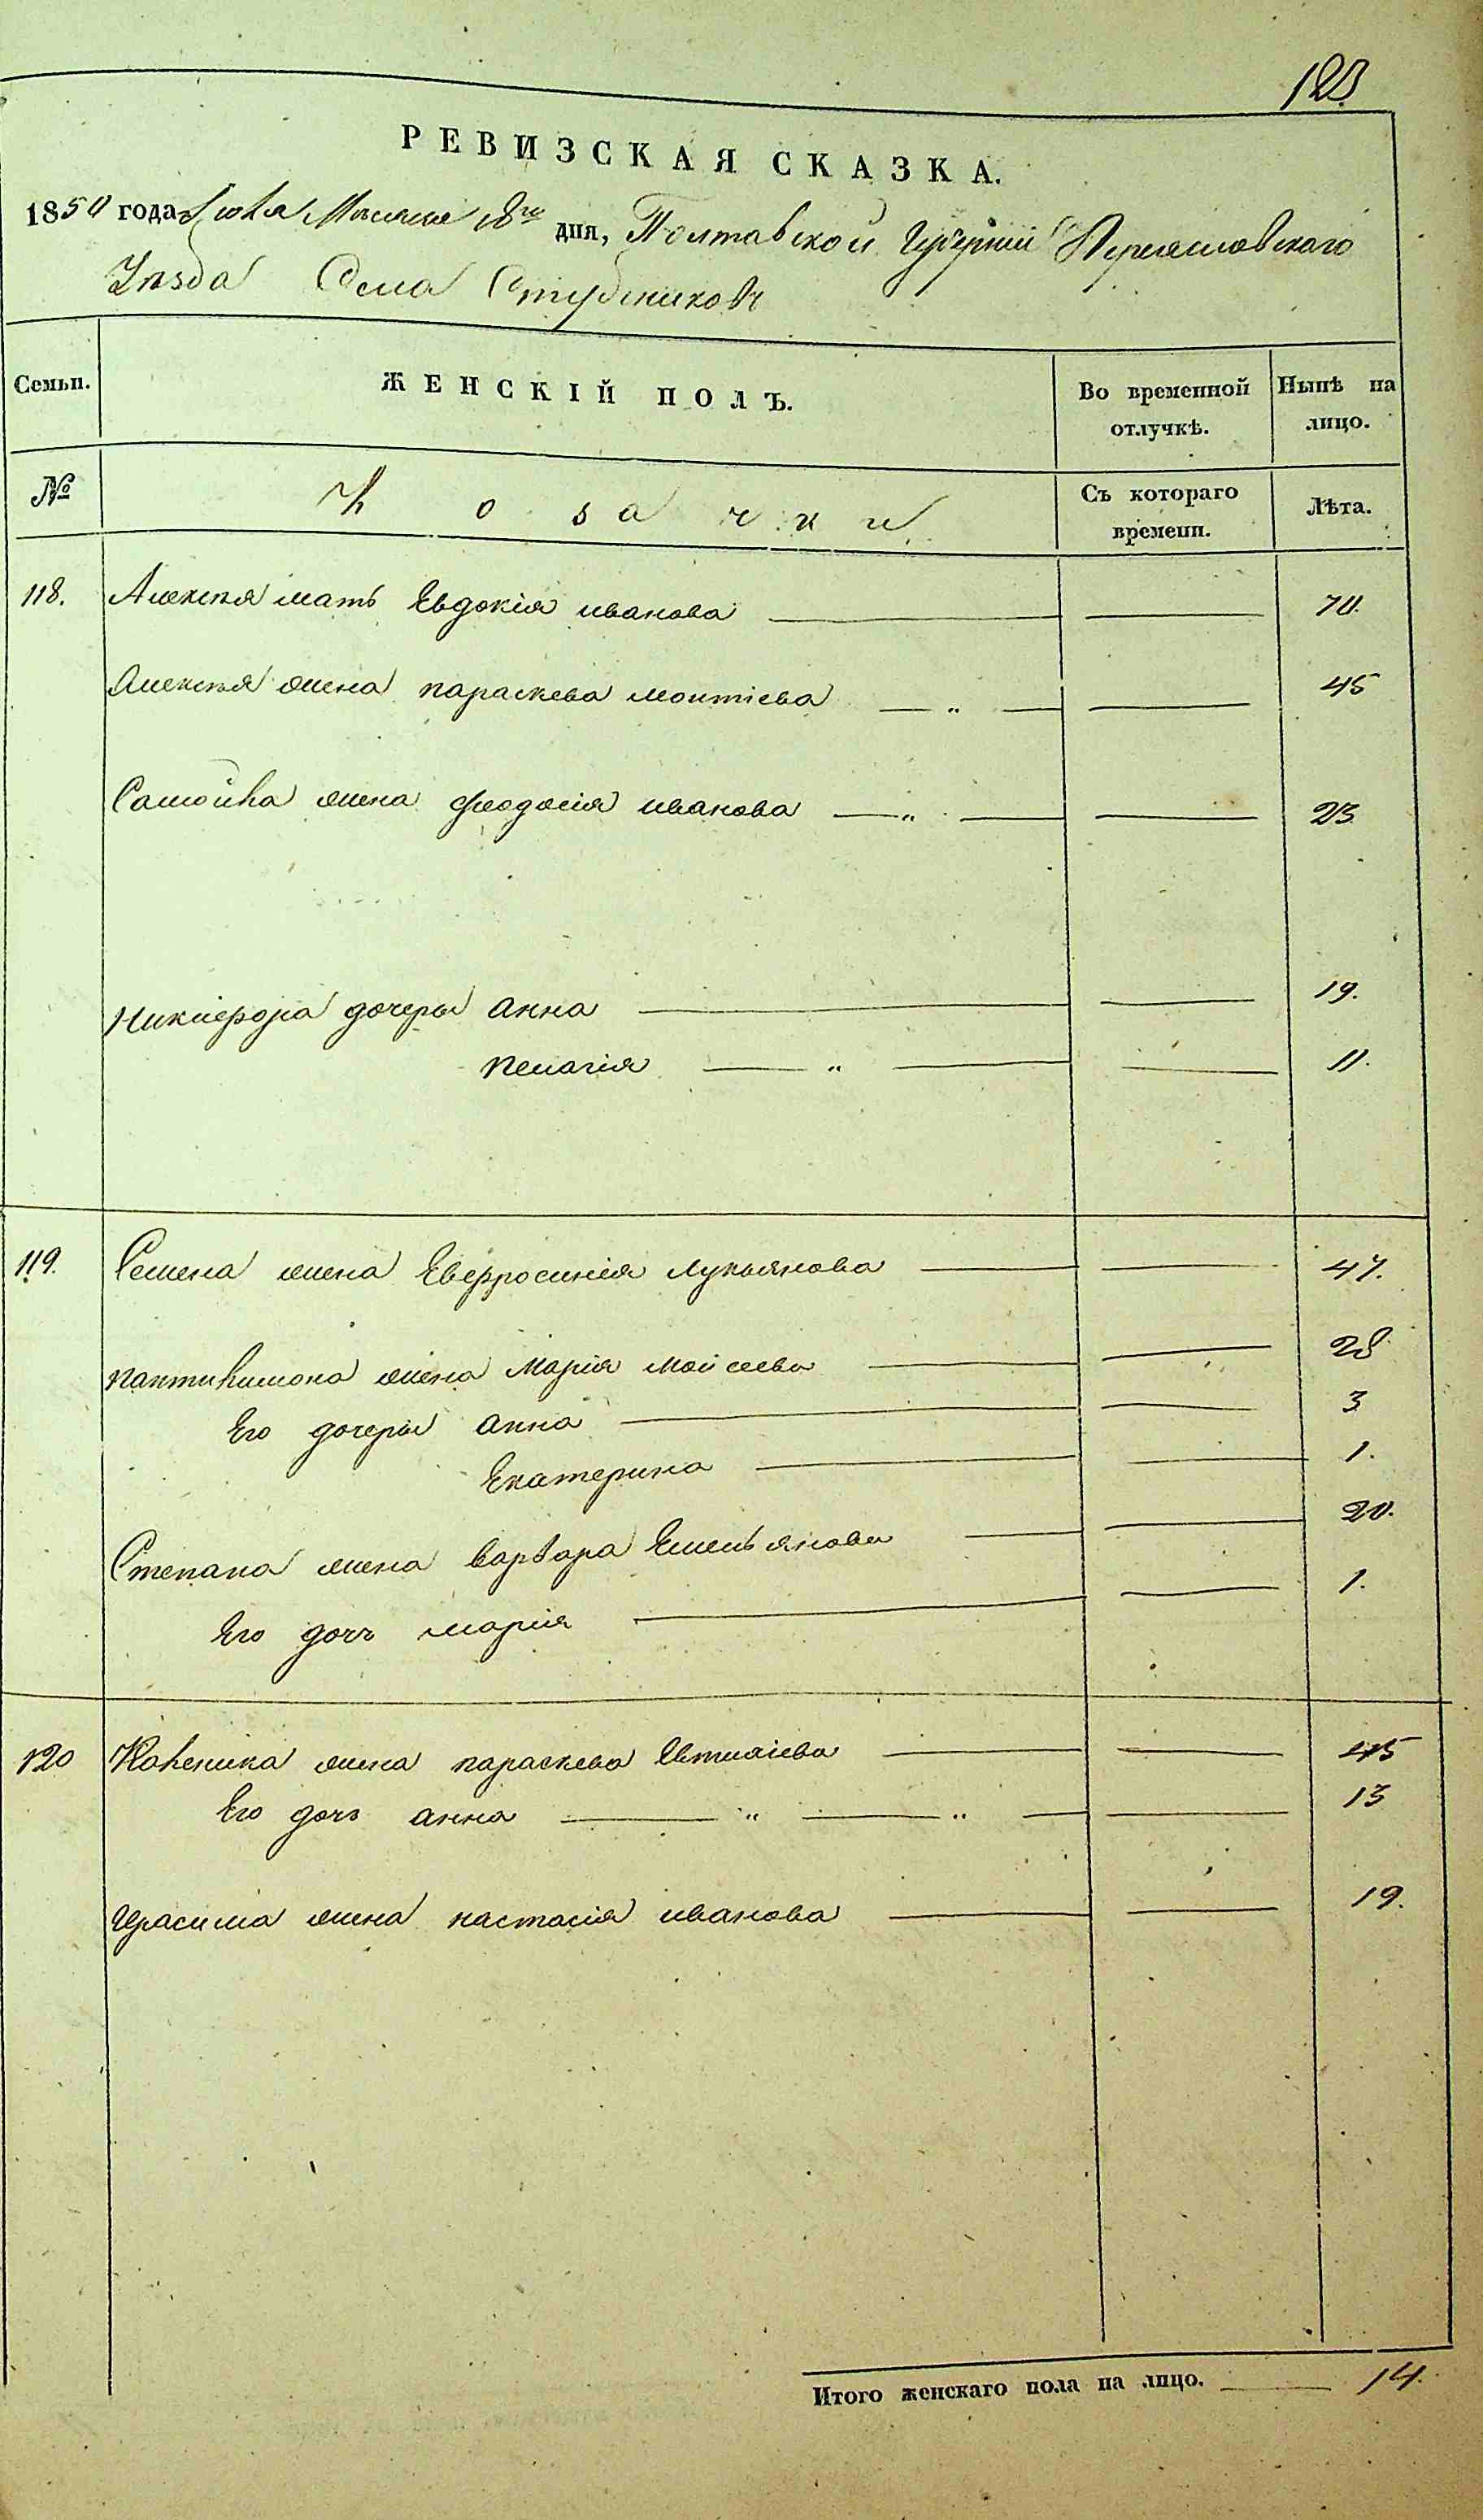 123
РЕВИЗСКАЯ СКАЗКА.
1850 года Июля Месяца 18го дня, Полтавской Губернии Переяславского
Уезда Села Студениковъ
Семьи. ЖЕНСКІЙ ПОЛЪ. Во временной отлучкѣ. Нынѣ на лицо.
№ Козачки Съ котораго времени. Лѣта.
118. Алексея мать Евдокія иванова 70.
Алексея жена параскева мокиева 45
Самойла жена феодосія иванова 23
Никифора дочеры анна 19.
пелагія " 11.
119. Семена жена Евфросинія лукьянова 47.
пантилимона жена Марія Моисеева 28
Его дочеры анна 3
Екатерина 1.
Степана жена варвара Емельянова 20.
Его дочъ марія 1.
120 жена параскева Евтихіева 45
Его дочъ анна " " 13
Герасима жена настасія иванова 19.
Итого женскаго пола на лицо. 14.